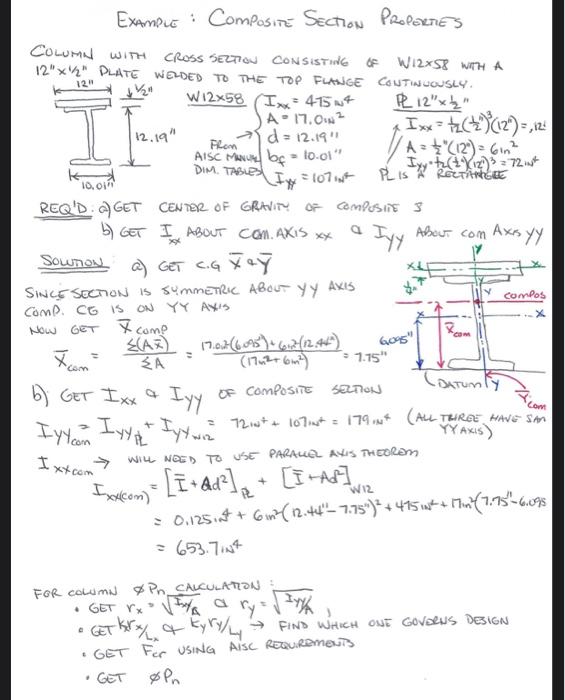 EXAMPLE : COMPOSITE SECTION PROPERTIES
COLUMN WITH CROSS SECTION CONSISTING OF W12x58 WITH A
12"x1/2" PLATE WELDED TO THE TOP FLANGE CONTINUOUSLY.
12"
1/2"
12.19"
10.01"
W12x58
FROM
AISC MANUAL
DIM. TABLES
Ixx = 475 in4
A = 17.0 in2
d = 12.19"
bf = 10.01"
Iyy = 107 in4
PL 12"x1/2"
Ixx = 1/12(1/2")3(12") = .12
A = 1/2"(12") = 6in2
Iyy = 1/12(1/2")(12")3 = 72in4
PL IS A RECTANGLE
REQ'D: a) GET CENTER OF GRAVITY OF COMPOSITE
b) GET Ixx ABOUT COM. AXIS xx & Iyy ABOUT COM AXIS yy
SOLUTION: a) GET C.G X̄ & Ȳ
SINCE SECTION IS SYMMETRIC ABOUT YY AXIS
COMP. CG IS ON YY AXIS
NOW GET X̄comp
X̄com = Σ(Ax̄)/ΣA = 17.0in2(6.095") + 6in2(12.44")/(17in2+6in2) = 7.75"
Y
x
x
1/2"
Y
compos
x
x
6.095"
X̄com
(DATUM)
Y
Ȳcom
b) GET Ixx & Iyy OF COMPOSITE SECTION
Iyycom = IyyPL + IyyW12 = 72in4 + 107in4 = 179in4 (ALL THREE HAVE SAM
YY AXIS)
Ixxcom → WILL NEED TO USE PARALLEL AXIS THEOREM
Ixx(com) = [Ī + Ad2]PL + [Ī + Ad2]W12
= 0.125in4 + 6in2(12.44"-7.75")2 + 475in4 + 17in2(7.75"-6.095
= 653.7in4
FOR COLUMN ØPn CALCULATION :
• GET rx = √Ixx/A & ry = √Iyy/A ,
• GET kxrx/Lx & kyry/Ly → FIND WHICH ONE GOVERNS DESIGN
• GET Fcr USING AISC REQUIREMENTS
• GET ØPn